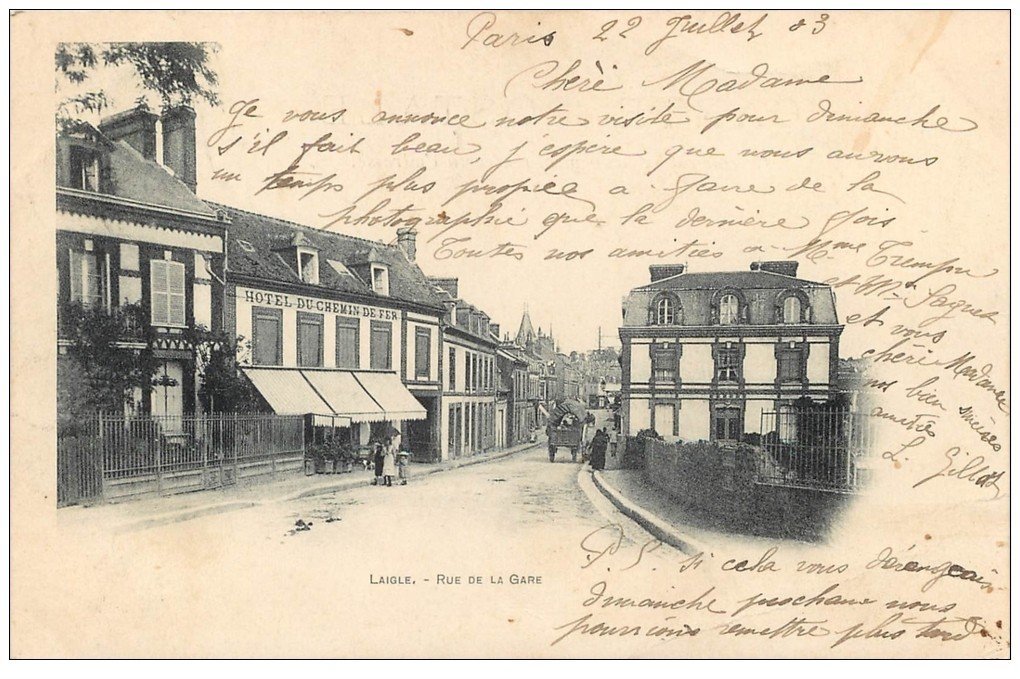 Paris 22 Juillet 03
Chère Madame
Je vous annonce notre visite pour dimanche
s'il fait beau, j'espère que nous aurons
un temps plus propice a faire de la
photographie que la dernière fois
Toutes nos amitiés a Mme
et Mr
et vous
chère Madame
bien sincères
amitiés
L. Gillot
HOTEL DU CHEMIN DE FER
LAIGLE. - RUE DE LA GARE
P.S. si cela vous dérangeais
dimanche prochain nous
pourrions remettre plus tard